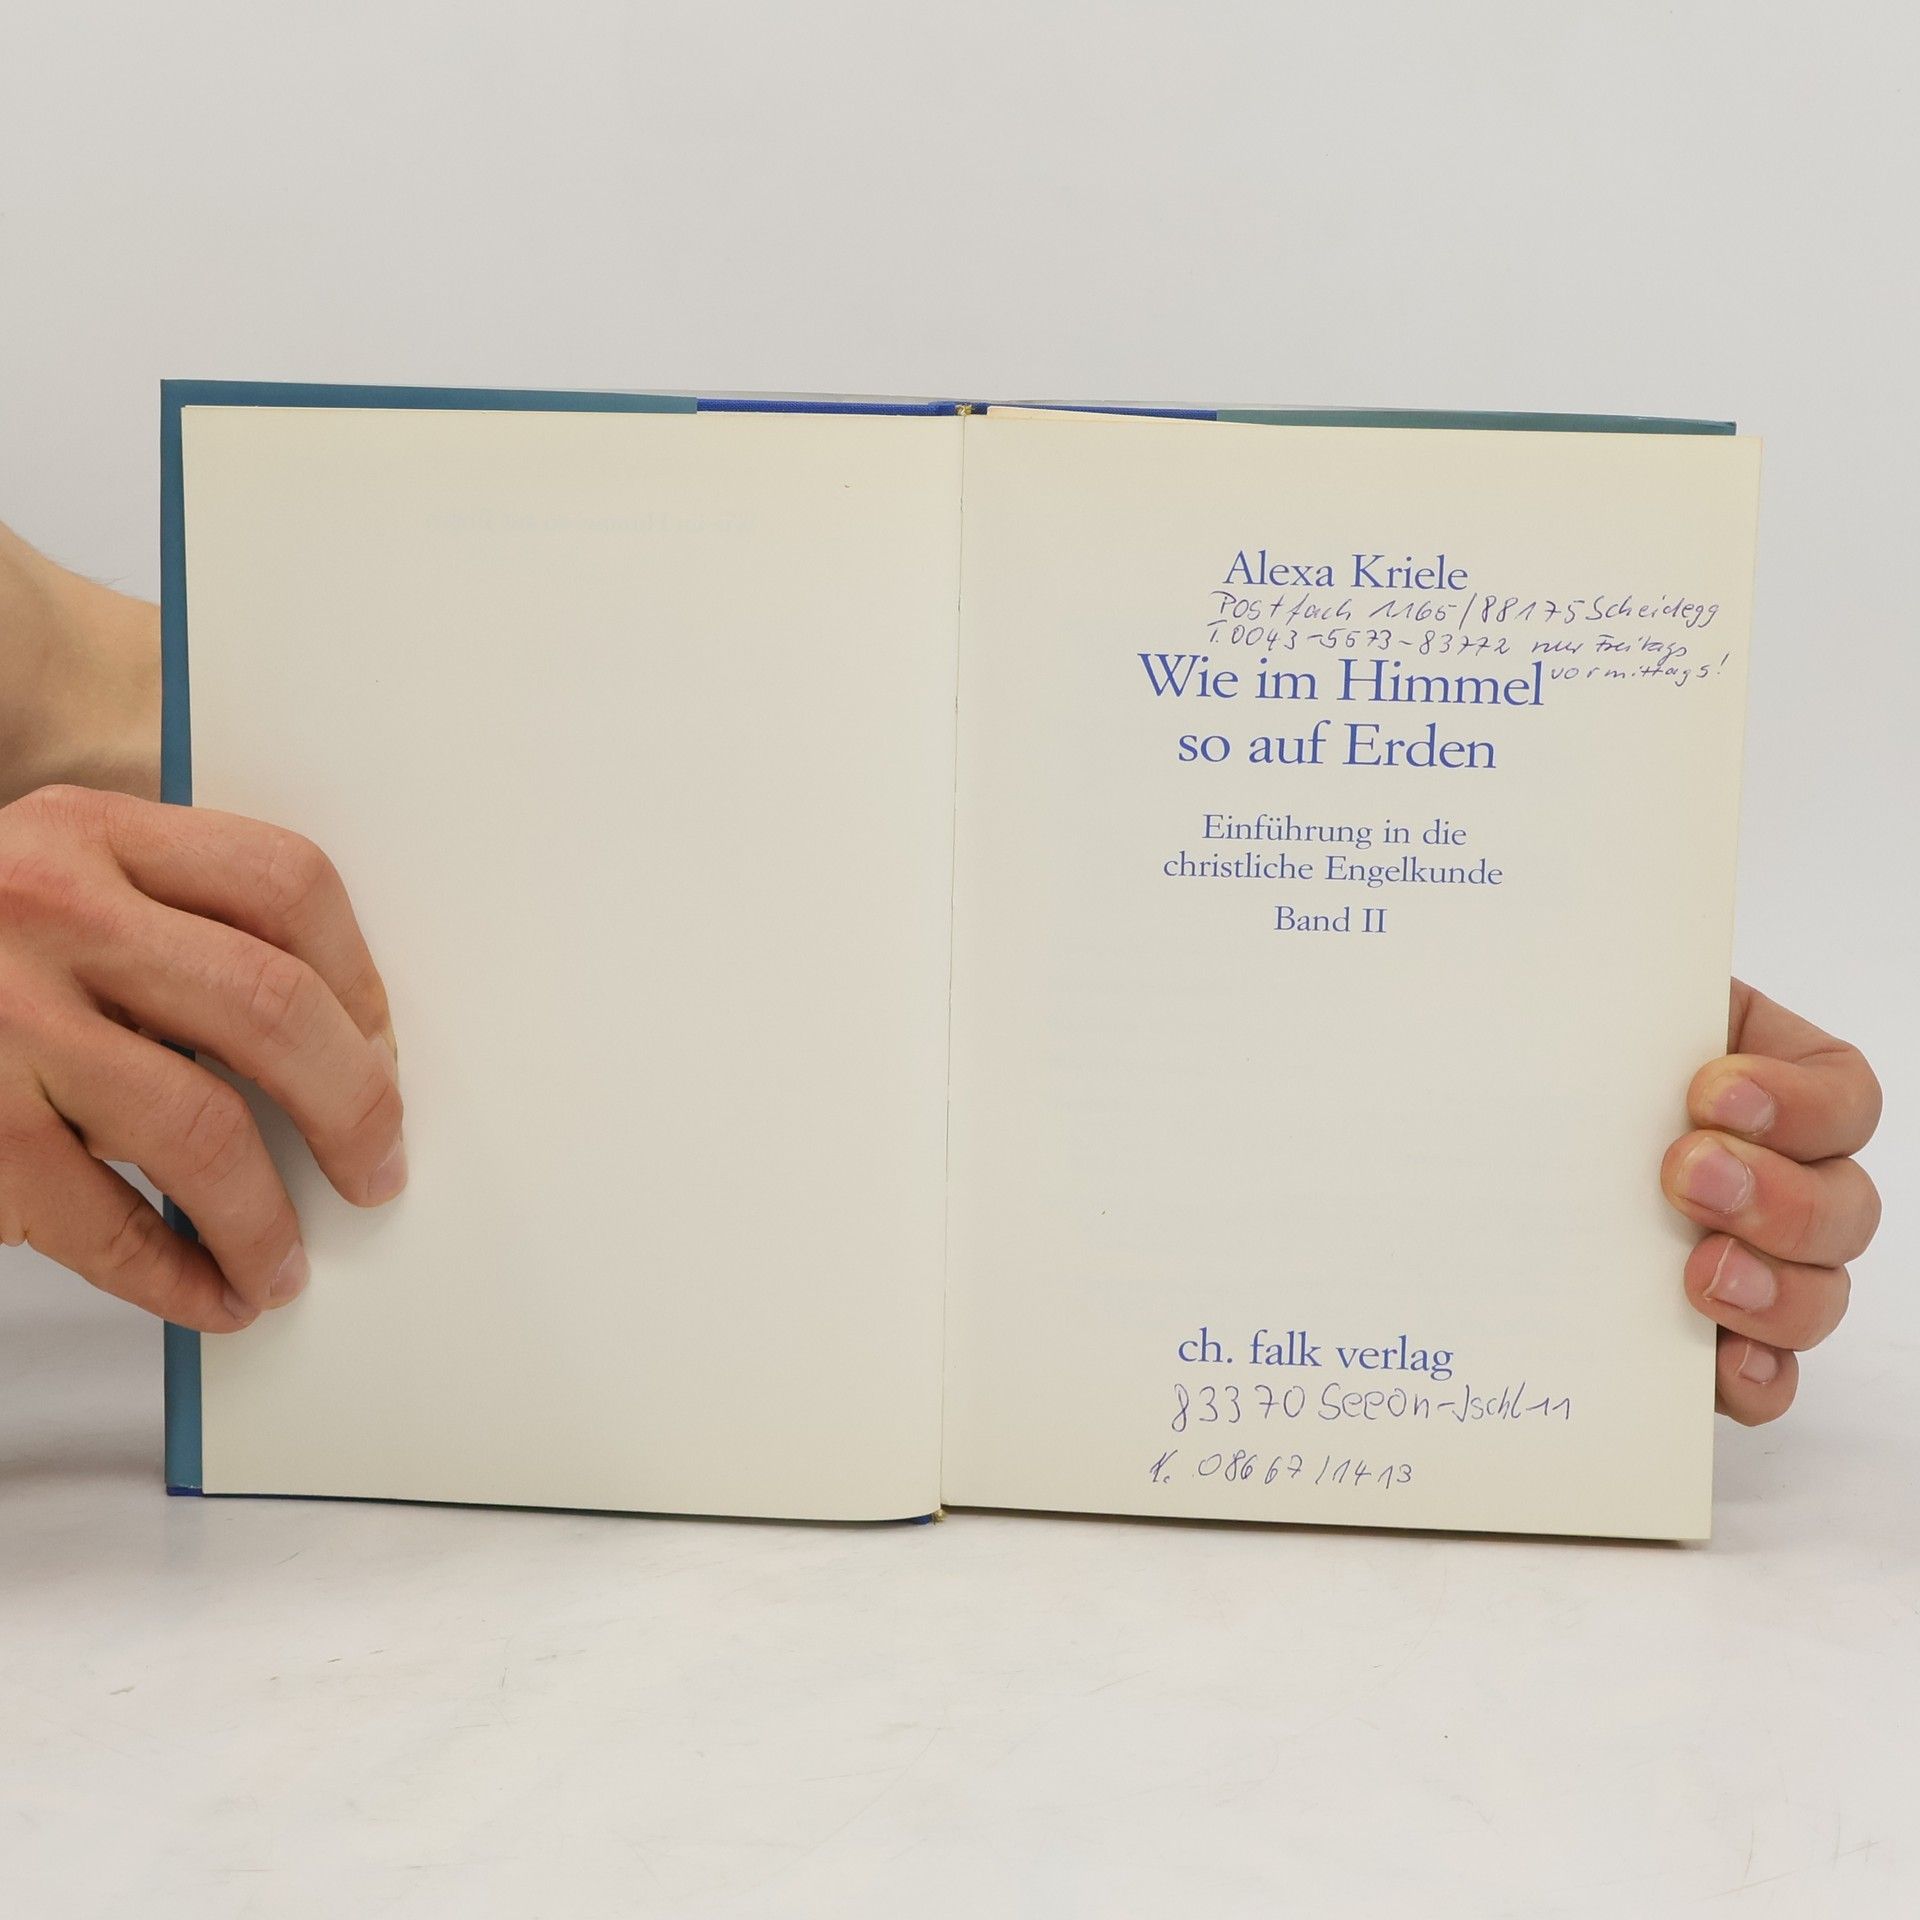 Alexa Kriele
Postfach 1165/88175 Scheidegg
T. 0043-5573-83772 nur Freitags
vormittags!
Wie im Himmel
so auf Erden
Einführung in die
christliche Engelkunde
Band II
ch. falk verlag
83370 Seeon-Ischl 11
T. 08667/1413